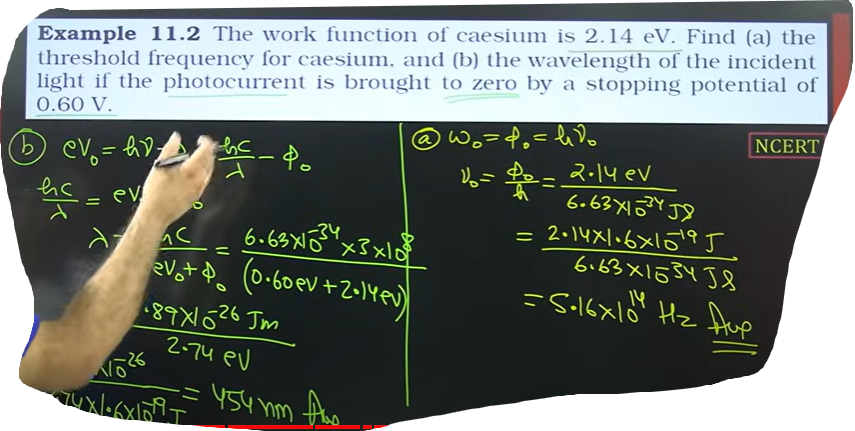 Example 11.2 The work function of caesium is 2.14 eV. Find (a) the
threshold frequency for caesium, and (b) the wavelength of the incident
light if the photocurrent is brought to zero by a stopping potential of
0.60 V.
NCERT
(b) eV₀ = hν hc/λ − φ₀
hc/λ = eV
λ = hC/(eV₀ + φ₀) = 6.63×10⁻³⁴ × 3×10⁸/(0.60eV + 2.14eV)
.89×10⁻²⁶ Jm/2.74 eV
×10⁻²⁶/74×1.6×10⁻¹⁹ J = 454 nm Ans
(a) W₀ = φ₀ = hν₀
ν₀ = φ₀/h = 2.14 eV/6.63×10⁻³⁴ Js
= 2.14×1.6×10⁻¹⁹ J/6.63×10⁻³⁴ Js
= 5.16×10¹⁴ Hz Ans